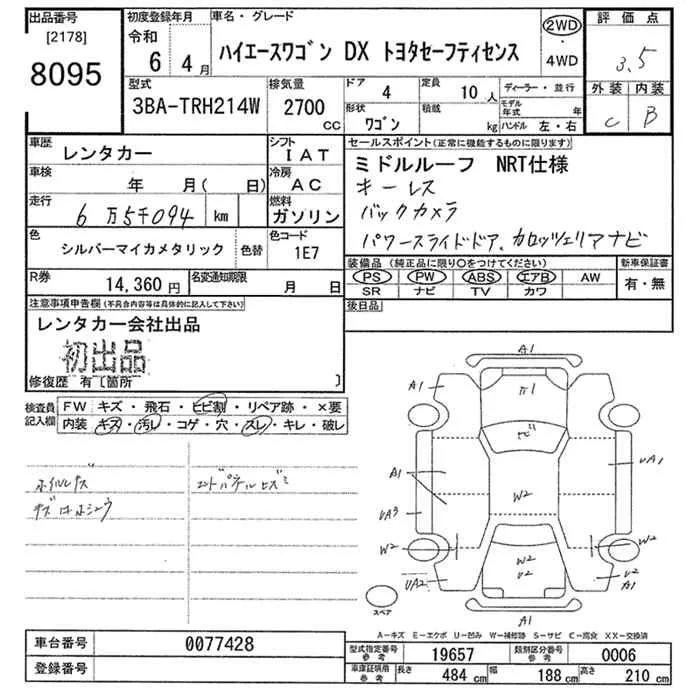 出品番号
[2178]
8095
初度登録年月
令和
6年 4月
車名・グレード
ハイエースワゴン DX トヨタセーフティセンス
2WD
4WD
評価点
3.5
外装 内装
C B
型式
3BA-TRH214W
排気量
2700 CC
ドア 4
形状 ワゴン
定員 10人
積載 kg
ディーラー・並行
モデル年式 年
ハンドル 左・右
車歴 レンタカー
車検 年 月( 日)
走行 6万5千094 km
色 シルバーマイカメタリック 色替
シフト IAT
冷房 AC
燃料 ガソリン
色コード 1E7
R券 14,360円
名変通知期限 月 日
セールスポイント(正常に機能するものに限ります)
ミドルルーフ NRT仕様
キーレス
バックカメラ
パワースライドドア、カロッツェリアナビ
装備品(純正品に限り○をつけてください)
PS PW ABS エアB AW
SR ナビ TV カワ
新車保証書
有・無
後日品
注意事項申告欄(不具合内容等は具体的に記入して下さい)
レンタカー会社出品
初出品
修復歴 有〔箇所 〕
検査員記入欄
FW キズ・飛石・ヒビ割・リペア跡・×要
内装 キズ・汚レ・コゲ・穴・スレ・キレ・破レ
A1
A1
A1
U1
ナビ
A1
UA1
W2
UA3
W2
W2
W2
U2
UA2
U2
A1
A1
スペア
A-キズ E-エクボ U-凹み W-補修跡 S-サビ C-腐食 XX-交換済
車台番号 0077428
登録番号
型式指定番号 参考 19657
類別区分番号 参考 0006
車庫証明用 参考 長さ 484 cm 幅 188 cm 高さ 210 cm